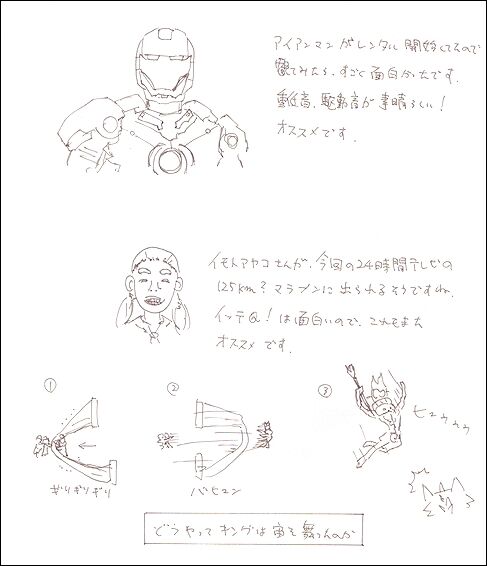 アイアンマンがレンタル開始してるので
観てみたら、すごく面白かたです。
重低音、駆動音が素晴らしい!
オススメです。
イモトアヤコさんが、今回の24時間テレビの
125km?マラソンに出られるそうですね。
イッテQ!は面白いので、これもまた
オススメです。
① ② ③
ヒュゥゥゥ
ギリギリギリ
バヒュン
どうやってキングは宙を舞ったのか